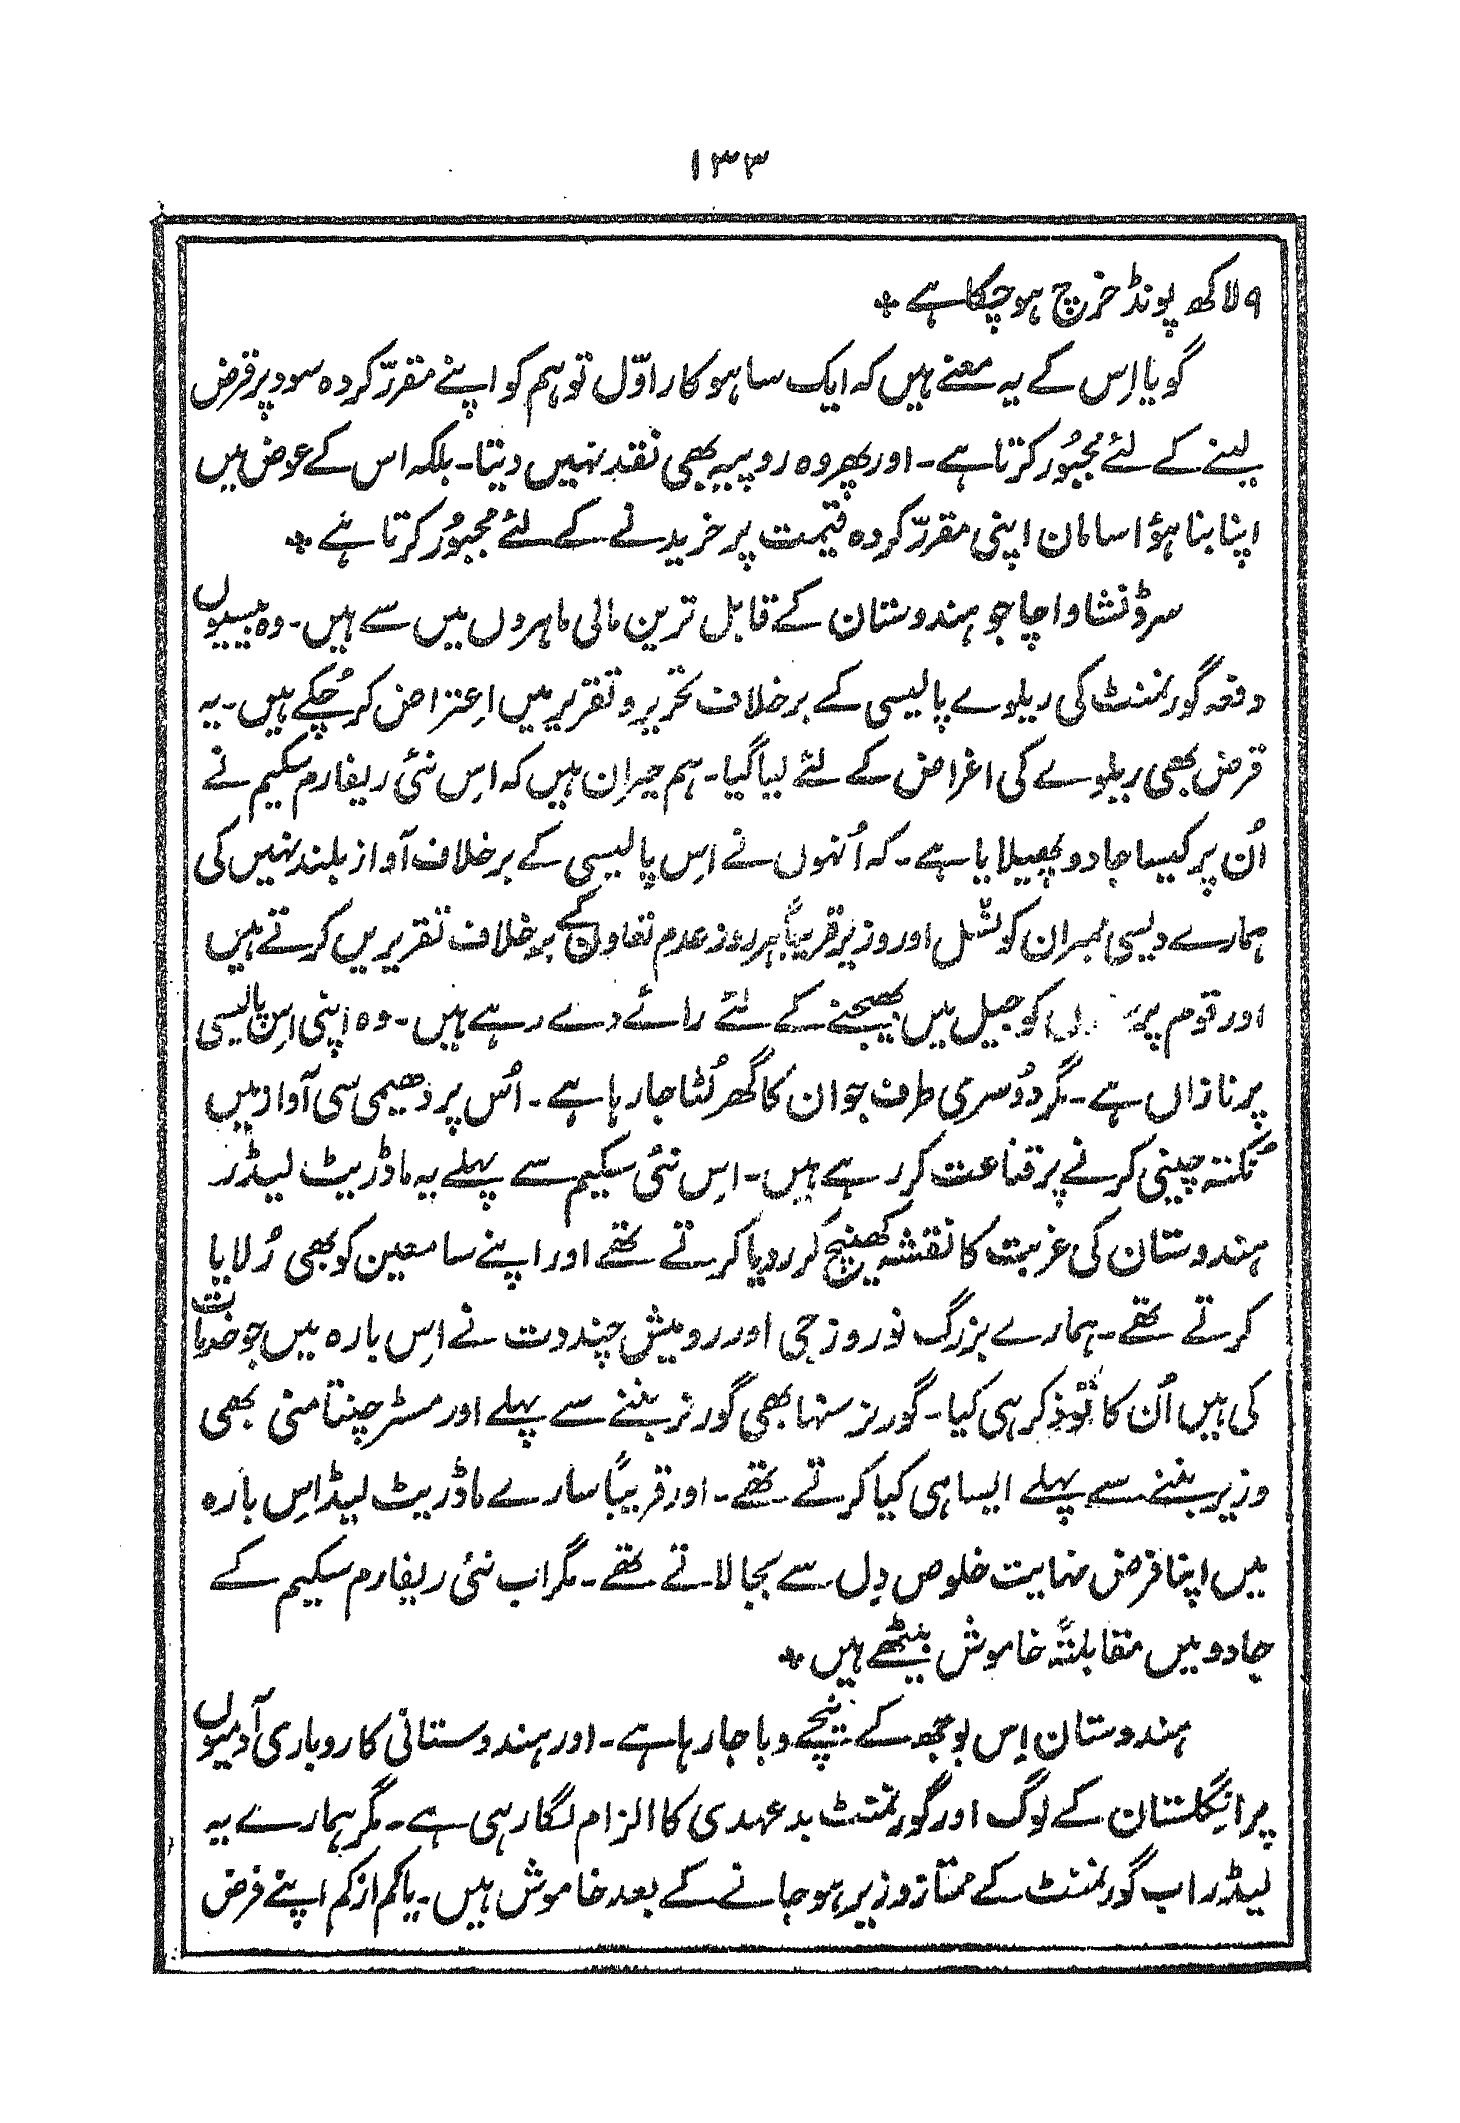 ۱۳۳
۹ لاکھ پونڈ خرچ ہو چکا ہے *
گویا اِس کے یہ معنے ہیں کہ ایک ساہوکار اوّل تو ہم کو اپنے مقررّ کردہ سود پر قرض
لینے کے لئے مجبُور کرتا ہے۔ اور پھر وہ روپیہ بھی نقد نہیں دیتا۔ بلکہ اس کے عوض میں
اپنا بنا ہؤا سامان اپنی مقررّ کردہ قیمت پر خریدنے کے لئے مجبُور کرتا ہے *
سرڈنشا واچا جو ہندوستان کے قابل ترین مالی ماہروں میں سے ہیں۔ وہ بیسیوں
دفعہ گورنمنٹ کی ریلوے پالیسی کے برخلاف تحریر و تقریر میں اِعتراض کر چُکے ہیں۔ یہ
قرض بھی ریلوے کی اغراض کے لئے لیا گیا۔ ہم حیران ہیں کہ اس نئی ریفارم سکیم نے
اُن پر کیسا جادو پھیلایا ہے۔ کہ اُنہوں نے اس پالیسی کے برخلاف آواز بلند نہیں کی
ہمارے دیسی ممبران کونسل اور وزیر قریباً ہر روز عدم تعاون کے برخلاف تقریریں کرتے ہیں
اور قوم کو جیل میں بھیجنے کے لئے رائے دے رہے ہیں۔ وہ اپنی اس پالیسی
پر نازاں ہے۔ مگر دُوسری طرف جو ان کا گھر لُٹا جا رہا ہے۔ اُس پر دھیمی سی آواز میں
نُکتہ چینی کرنے پر قناعت کر رہے ہیں۔ اس نئی سکیم سے پہلے یہ ماڈریٹ لیڈر
ہندوستان کی غربت کا نقشہ کھینچ کر رویا کرتے تھے اور اپنے سامعین کو بھی رُلایا
کرتے تھے۔ ہمارے بزرگ نوروز جی اور رومیش چندوت نے اِس بارہ میں جو خدمات
کی ہیں اُن کا تو ذکر ہی کیا۔ گورنر سنہا بھی گورنر بننے سے پہلے اور مسٹر چنتامنی بھی
وزیر بننے سے پہلے ایسا ہی کیا کرتے تھے۔ اور قریباً سارے ماڈریٹ لیڈر اِس بارہ
میں اپنا فرض نہایت خلوص دِل سے بجا لاتے تھے۔ مگر اب نئی ریفارم سکیم کے
جادو میں مقابلتہً خاموش بیٹھے ہیں *
ہندوستان اِس بوجھ کے نیچے دبا جا رہا ہے۔ اور ہندوستانی کاروباری آدمیوں
پر انگلستان کے لوگ اور گورنمنٹ بدعہدی کا الزام لگا رہی ہے۔ مگر ہمارے یہ
لیڈر اب گورنمنٹ کے ممتاز وزیر ہو جانے کے بعد خاموش ہیں۔ یا کم از کم اپنے فرض